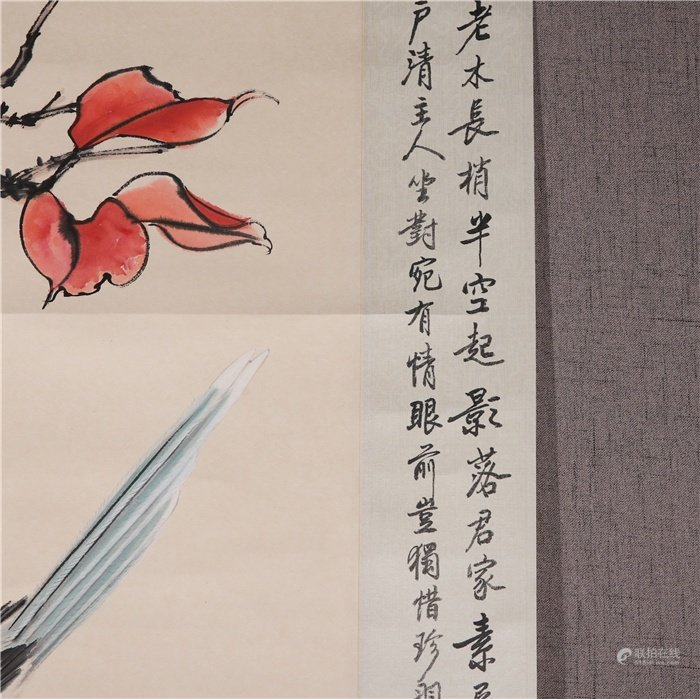 老木長梢半空起影落君家素
戶清主人坐對宛有情眼前豈獨惜珍
联拍在线